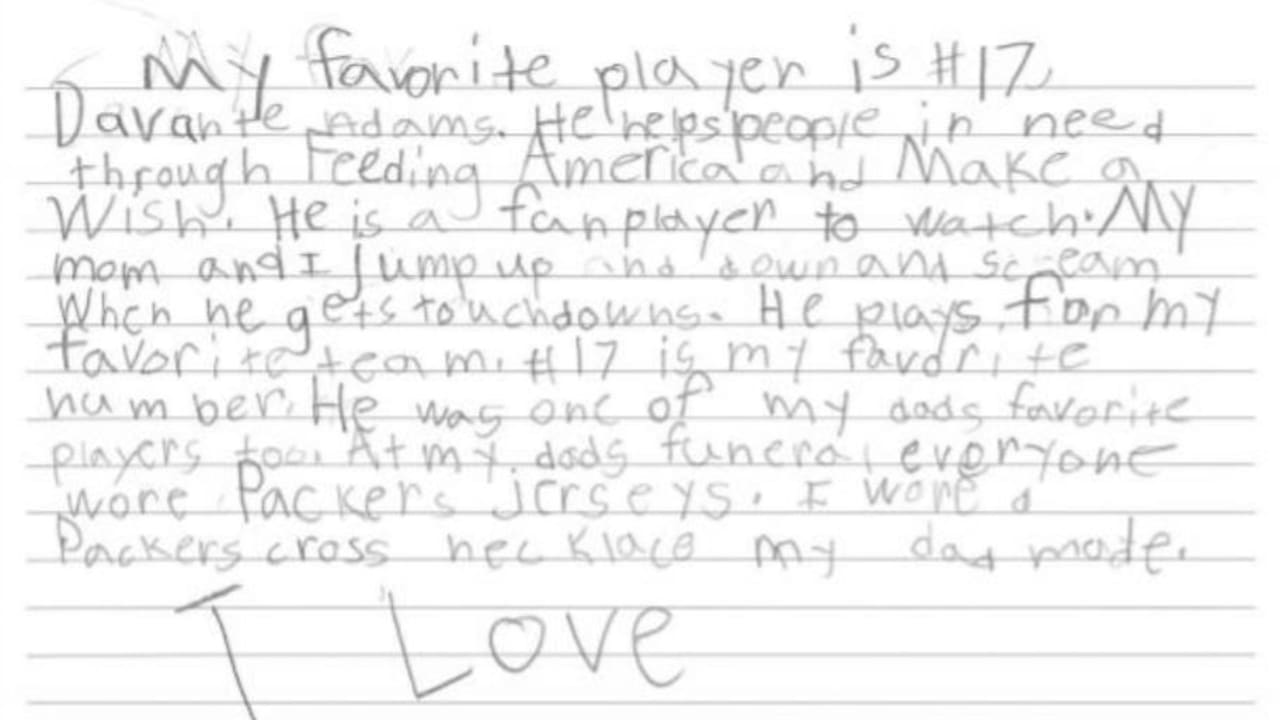 My favorite player is #17,
Davante Adams. He helps people in need
through Feeding America and Make a
Wish. He is a fan player to watch. My
mom and I Jump up and down and scream
when he gets touchdowns. He plays for my
favorite team. #17 is my favorite
number. He was one of my dads favorite
players too. At my dads funeral everyone
wore Packers jerseys. I wore a
Packers cross necklace my dad made.
I Love